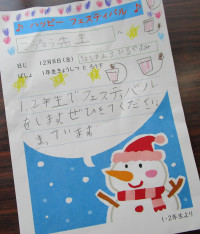 ♪ ハッピー フェスティバル ♪
先生
にじ 12月8日(金)
ばしょ 1年生きょうしつ とろうか
1、2年生でフェスティバル
をします。ぜひきてください。
まっています。
1・2年生より